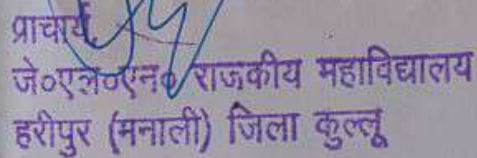 प्राचार्य
जे०एल०एन० राजकीय महाविद्यालय
हरीपुर (मनाली) जिला कुल्लू